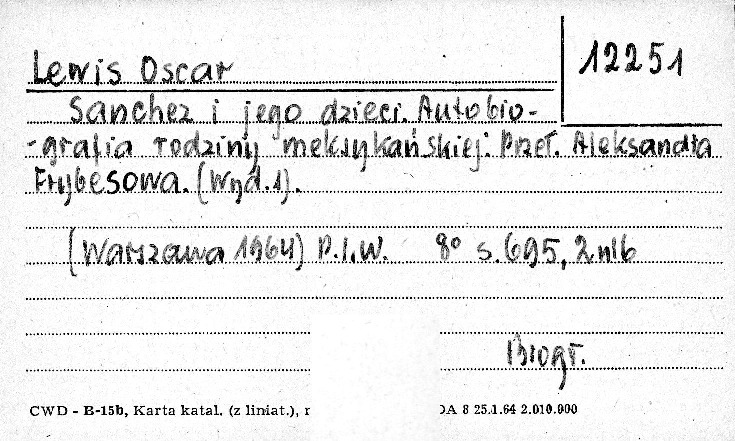 Lewis Oscar
12251
Sanchez i jego dzieci. Autobio-
-grafia rodziny meksykańskiej. Przeł. Aleksandra
Frybesowa. (Wyd. 1).
(Warszawa 1964) P.I.W. 8° s. 695, 2 nlb
Biogr.
CWD - B-15b, Karta katal. (z liniat.), 8 25.1.64 2.010.000